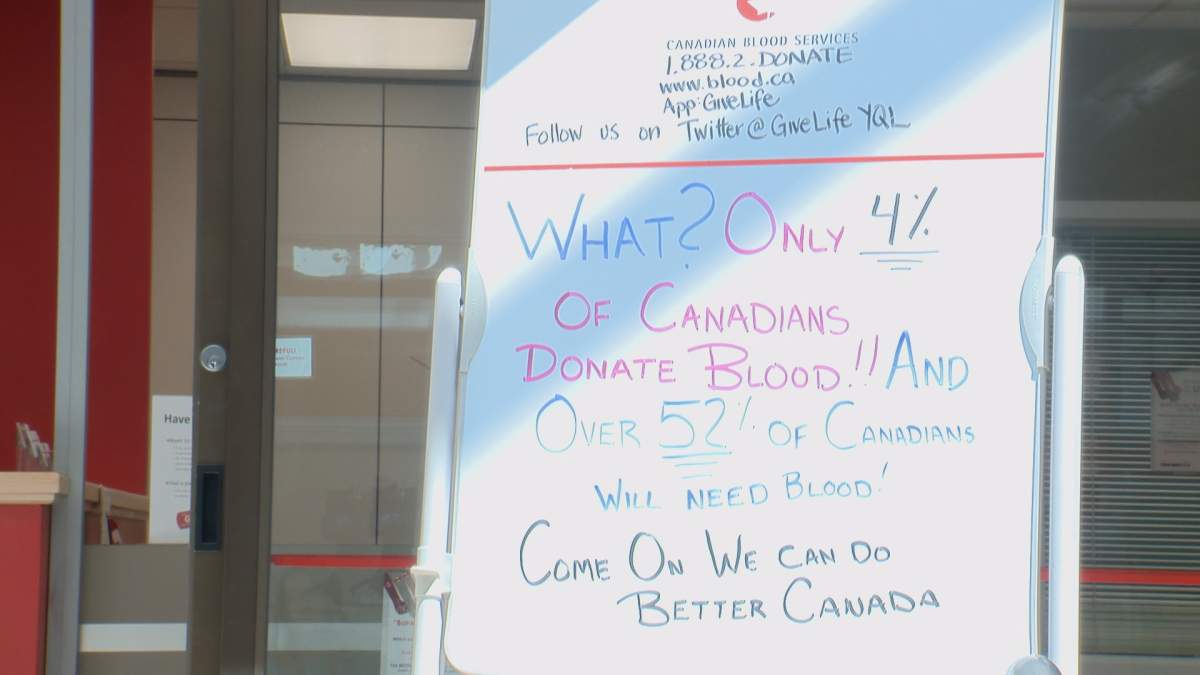 CANADIAN BLOOD SERVICES
1.888.2.DONATE
www.blood.ca
App:GiveLife
Follow us on Twitter@GiveLifeYQL
WHAT? ONLY 4%
OF CANADIANS
DONATE BLOOD!! AND
OVER 52% OF CANADIANS
WILL NEED BLOOD!
COME ON WE CAN DO
BETTER CANADA
Have